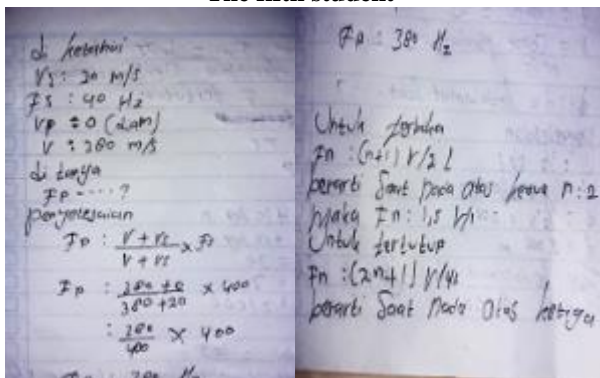 The fifth student
di ketahui
Vs : 20 m/s
Fs : 40 Hz
VP = 0 (diam)
V : 380 m/s
di tanya
Fp = ....?
penyelesaian
Fp : V + Vs / V + Vs x Fs
Fp : 380 + 0 / 380 + 20 x 400
: 380 / 400 x 400
FP : 380 Hz
Untuk terbuka
Fn : (n+1) V/2 L
berarti Saat nada atas kedua n : 2
Maka Fn : 1,5 V/
Untuk tertutup
Fn : (2n+1) V/4L
berarti Saat Nada Atas ketiga